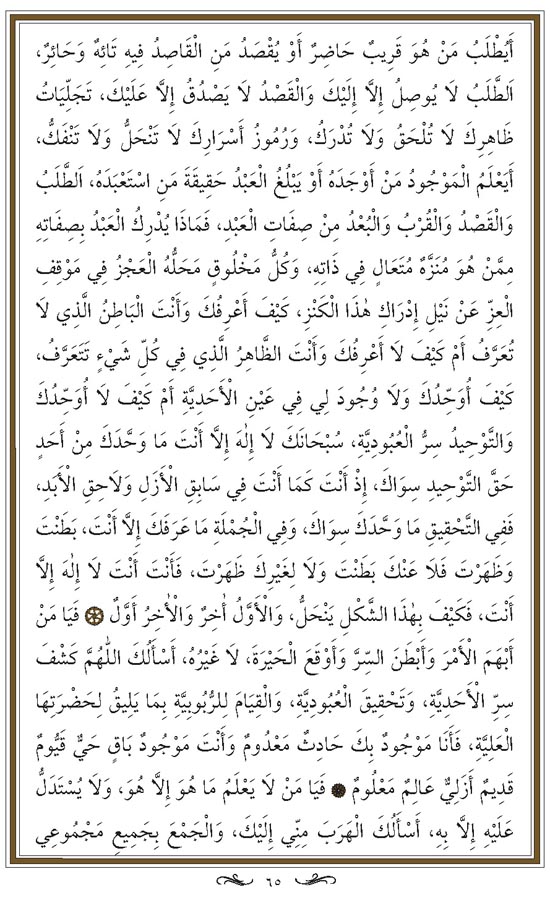 أَيُطْلَبُ مَنْ هُوَ قَرِيبٌ حَاضِرٌ أَوْ يُقْصَدُ مَنِ الْقَاصِدُ فِيهِ تَائِهٌ وَحَائِرٌ،
اَلطَّلَبُ لَا يُوصِلُ إِلَّا إِلَيْكَ وَالْقَصْدُ لَا يَصْدُقُ إِلَّا عَلَيْكَ، تَجَلِّيَاتُ
ظَاهِرِكَ لَا تُلْحَقُ وَلَا تُدْرَكُ، وَرُمُوزُ أَسْرَارِكَ لَا تَنْحَلُّ وَلَا تَنْفَكُّ،
أَيَعْلَمُ الْمَوْجُودُ مَنْ أَوْجَدَهُ أَوْ يَبْلُغُ الْعَبْدُ حَقِيقَةَ مَنِ اسْتَعْبَدَهُ، اَلطَّلَبُ
وَالْقَصْدُ وَالْقُرْبُ وَالْبُعْدُ مِنْ صِفَاتِ الْعَبْدِ، فَمَاذَا يُدْرِكُ الْعَبْدُ بِصِفَاتِهِ
مِمَّنْ هُوَ مُنَزَّهٌ مُتَعَالٍ فِي ذَاتِهِ، وَكُلُّ مَخْلُوقٍ مَحَلُّهُ الْعَجْزُ فِي مَوْقِفِ
الْعِزِّ عَنْ نَيْلِ إِدْرَاكِ هٰذَا الْكَنْزِ، كَيْفَ أَعْرِفُكَ وَأَنْتَ الْبَاطِنُ الَّذِي لَا
تُعَرَّفُ أَمْ كَيْفَ لَا أَعْرِفُكَ وَأَنْتَ الظَّاهِرُ الَّذِي فِي كُلِّ شَيْءٍ تَتَعَرَّفُ،
كَيْفَ أُوَحِّدُكَ وَلَا وُجُودَ لِي فِي عَيْنِ الْأَحَدِيَّةِ أَمْ كَيْفَ لَا أُوَحِّدُكَ
وَالتَّوْحِيدُ سِرُّ الْعُبُودِيَّةِ، سُبْحَانَكَ لَا إِلٰهَ إِلَّا أَنْتَ مَا وَحَّدَكَ مِنْ أَحَدٍ
حَقَّ التَّوْحِيدِ سِوَاكَ، إِذْ أَنْتَ كَمَا أَنْتَ فِي سَابِقِ الْأَزَلِ وَلَاحِقِ الْأَبَدِ،
فَفِي التَّحْقِيقِ مَا وَحَّدَكَ سِوَاكَ، وَفِي الْجُمْلَةِ مَا عَرَفَكَ إِلَّا أَنْتَ، بَطَنْتَ
وَظَهَرْتَ فَلَا عَنْكَ بَطَنْتَ وَلَا لِغَيْرِكَ ظَهَرْتَ، فَأَنْتَ أَنْتَ لَا إِلٰهَ إِلَّا
أَنْتَ، فَكَيْفَ بِهٰذَا الشَّكْلِ يَنْحَلُّ، وَالْأَوَّلُ أٰخِرٌ وَالْأٰخِرُ أَوَّلٌ ۞ فَيَا مَنْ
أَبْهَمَ الْأَمْرَ وَأَبْطَنَ السِّرَّ وَأَوْقَعَ الْحَيْرَةَ، لَا غَيْرُهُ، أَسْأَلُكَ اللّٰهُمَّ كَشْفَ
سِرِّ الْأَحَدِيَّةِ، وَتَحْقِيقَ الْعُبُودِيَّةِ، وَالْقِيَامَ لِلرُّبُوبِيَّةِ بِمَا يَلِيقُ لِحَضْرَتِهَا
الْعَلِيَّةِ، فَأَنَا مَوْجُودٌ بِكَ حَادِثٌ مَعْدُومٌ وَأَنْتَ مَوْجُودٌ بَاقٍ حَيٌّ قَيُّومٌ
قَدِيمٌ أَزَلِيٌّ عَالِمٌ مَعْلُومٌ ۞ فَيَا مَنْ لَا يَعْلَمُ مَا هُوَ إِلَّا هُوَ، وَلَا يُسْتَدَلُّ
عَلَيْهِ إِلَّا بِهِ، أَسْأَلُكَ الْهَرَبَ مِنِّي إِلَيْكَ، وَالْجَمْعَ بِجَمِيعِ مَجْمُوعِي
٦٥